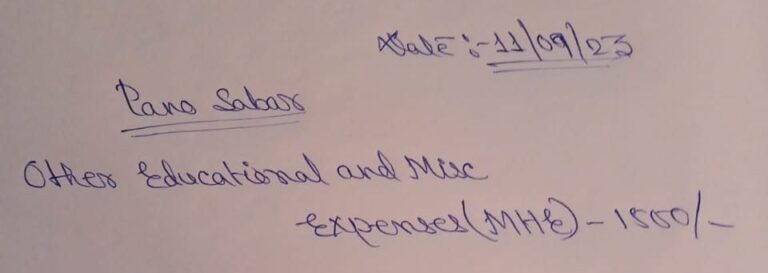 Date :- 11/09/23
Pano Sabar
Other Educational and Misc
Expenses (MHE) - 1500/-